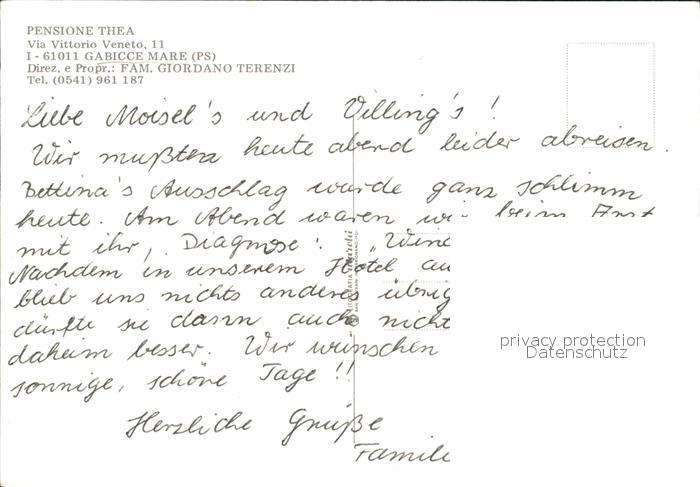 PENSIONE THEA
Via Vittorio Veneto, 11
I - 61011 GABICCE MARE (PS)
Direz. e Propr.: FAM. GIORDANO TERENZI
Tel. (0541) 961 187
Liebe Moisel's und Villing's!
Wir mußten heute abend leider abreisen.
Bettina's Ausschlag wurde ganz schlimm
heute. Am Abend waren wir beim Arzt
mit ihr, Diagnose: „Wind
Nachdem in unserem Hotel au
blieb uns nichts anderes übrig
dürfte sie dann auch nicht
daheim besser. Wir wünschen
sonnige, schöne Tage!!
Herzliche Grüße
Famili
privacy protection
Datenschutz